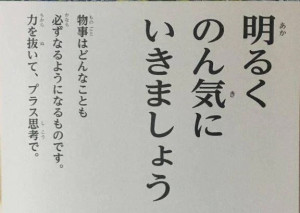 明るく
のん気に
いきましょう
物事はどんなことも
必ずなるようになるものです。
力を抜いて、プラス思考で。